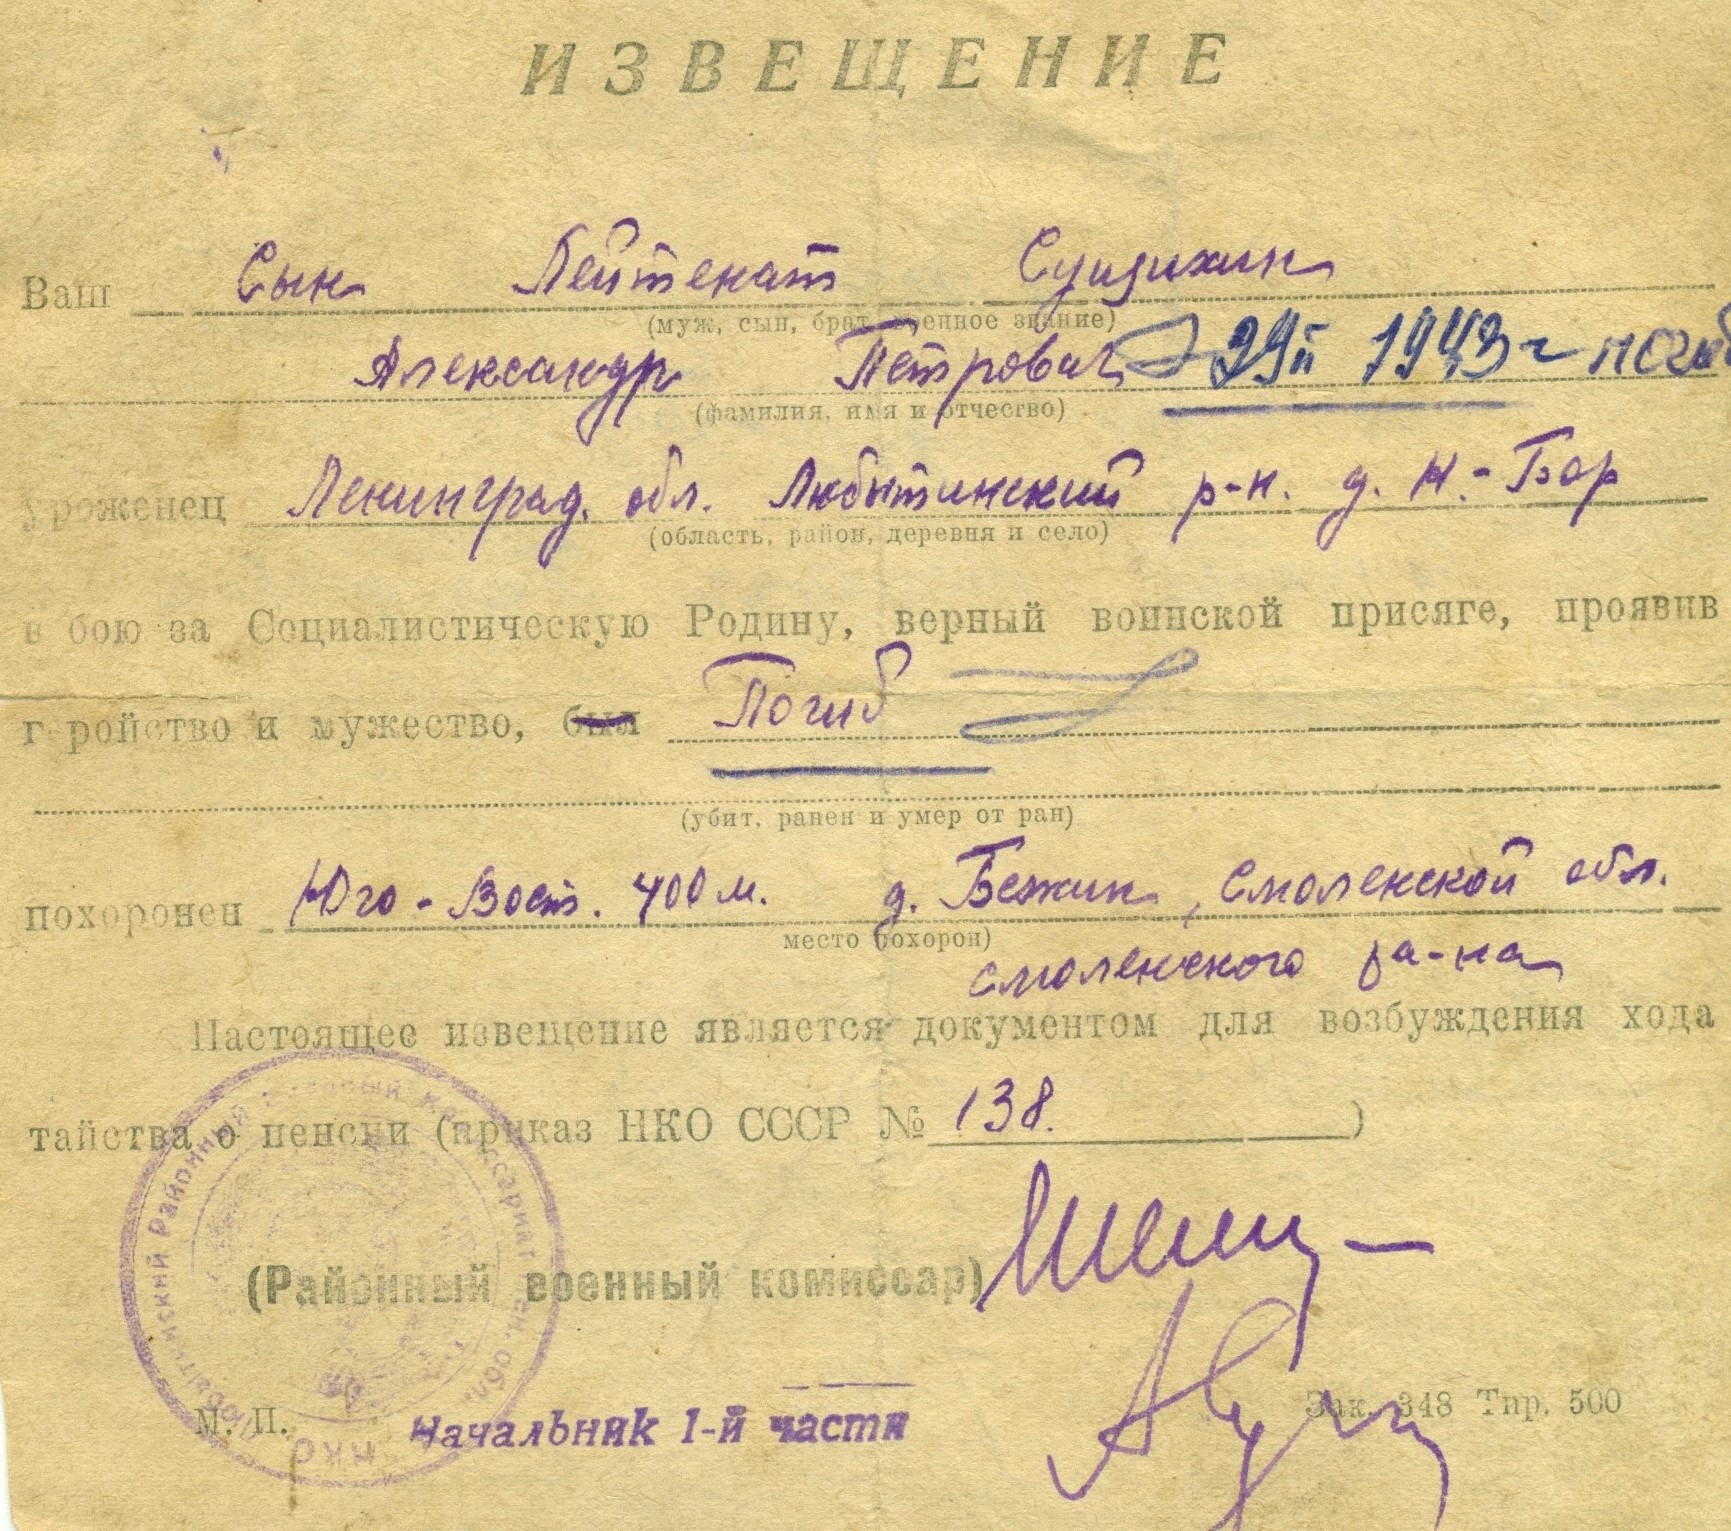 ИЗВЕЩЕНИЕ
Ваш Сын Лейтенат Сущихин
(муж, сын, брат, военное звание)
Александр Петрович 1943 г погиб
(фамилия, имя и отчество)
уроженец Ленинград. обл. Любытинский р-н. д. Н.-Бор
(область, район, деревня и село)
в бою за Социалистическую Родину, верный воинской присяге, проявив
геройство и мужество, был Погиб
(убит, ранен и умер от ран)
похоронен Юго-Вост. 400 м. д. Бежин, Смоленской обл.
место похорон)
смоленского ра-на
Настоящее извещение является документом для возбуждения хода
тайства о пенсии (приказ НКО СССР № 138. )
(Районный военный комиссар)
Зак. 348 Тир. 500
М. П. Начальник 1-й части
Любытинский Районный Военный Комиссариат Лен. обл. НКО